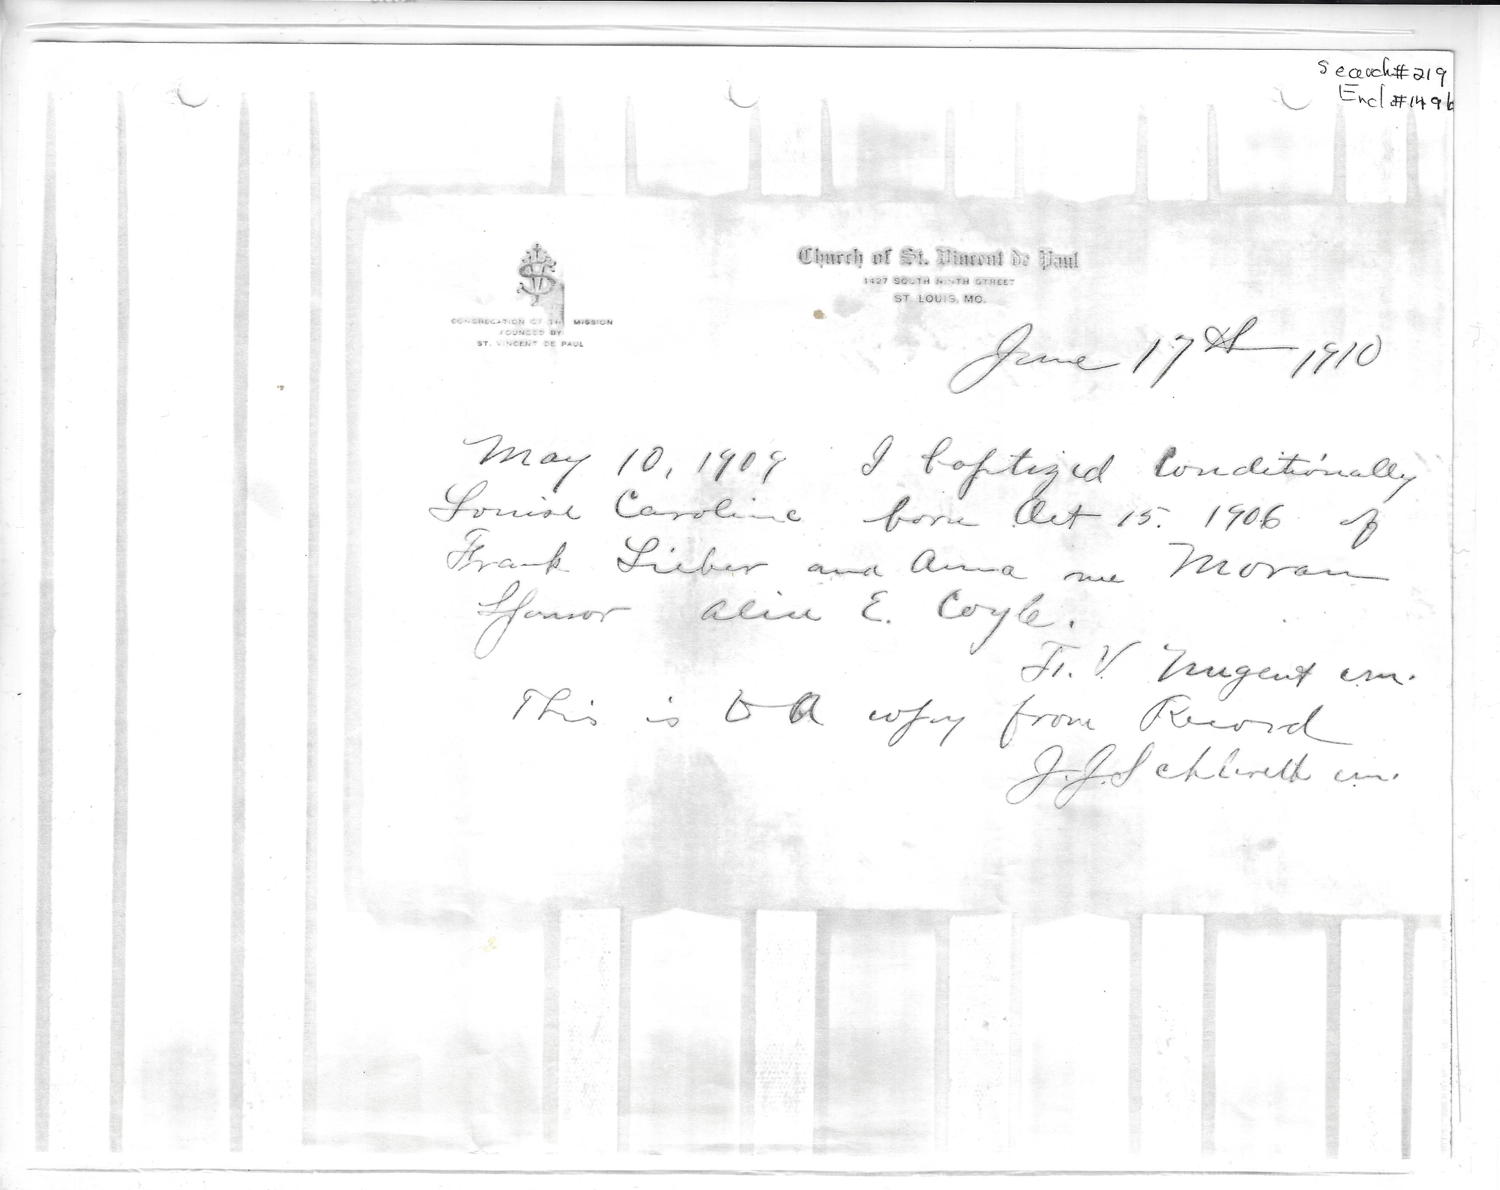 Search #219
Encl #149b
Church of St. Vincent de Paul
1427 SOUTH NINTH STREET
ST. LOUIS, MO.
CONGREGATION OF THE MISSION
FOUNDED BY
ST. VINCENT DE PAUL
June 17th 1910
May 10, 1909 I baptized conditionally
Louise Caroline born Oct 15. 1906 of
Frank Lieber and Anna nee Moran
Sponsor Alice E. Coyle.
F. V. Nugent cm.
This is a copy from Record
J. J. cm.